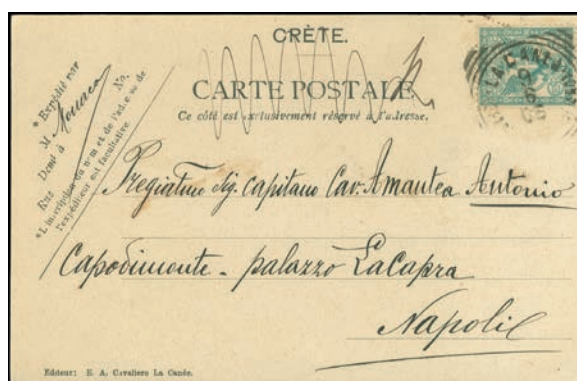 CRÈTE.
CARTE POSTALE
Ce côté est exclusivement réservé à l'adresse.
* Expédié par
M. Monaco
Demᵗ à
Rue No.
*L'inscription du nom et de l'adresse de
l'expéditeur est facultative.
LA CANEA
Pregiatmo Sig. Capitano Cav. Amantea Antonio
Capodimonte - palazzo LaCapra
Napoli
Editeur: E. A. Cavaliero La Canée.